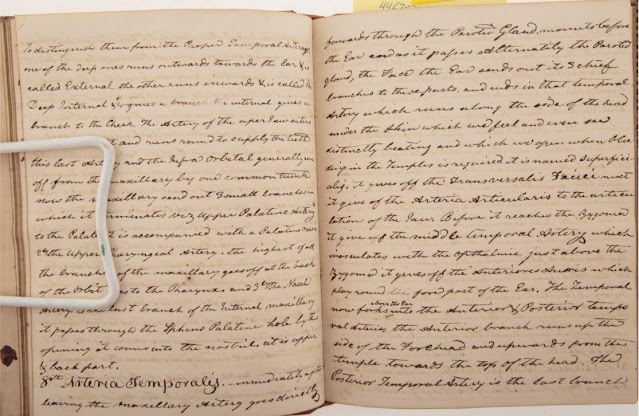 To distinguish them from the Proper Temporal Arterys
one of the deep ones runs outwards towards the Ear & is
called External the other runs inwards & is called the
Deep Internal & gives a branch internal gives a
branch to the Cheek. The Artery of the upper Jaw enters
and runs round to supply the teeth
this last Artery and the Infra Orbital generally
off from the maxillary by one common trunk
now the maxillary send out 3 small branches in
which it terminates Viz Upper Palatine Artery
to the Palate is accompanied with a Palatine
2nd the Upper Pharyngeal Artery, the highest of all
the branches of the maxillary goes off at the back
of the Orbit to the Pharynx and 3d The Nasal
Artery, is the last branch of the Internal maxillary
it passes through the Spheno Palatine hole by this
opening it comes into the nostrils at its upper
& back part.
8th Arteria Temporalis. immediately after
leaving the maxillary Artery goes directly
446
forwards through the Parotid Gland, mounts before
the Ear and as it passes Alternately the Parotid
gland, the Face the Ear sends out its 3 chief
branches to these parts, and ends in that temporal
Artery which runs along the side of the head
under the Skin which we feel and even see
distinctly beating and which we open when Blee
ding in the Temples is required it is named Superfici
alis, it gives off the Transversalis Faicei next
it gives off the Arteria Articularis to the articu
lation of the Jaw. Before it reaches the Zygoma
it gives off the middle temporal Artery which
inosculates with the Opthalmic, just above the
Zygoma it gives off the Anteriores Auris which
play round the fore part of the Ear. The Temporal
now forks above the Ear into the Anterior & Posterior tempo
ral Arteries the Anterior branch runs up the
side of the Forehead and upwards from the
temple towards the top of the head. The
Posterior Temporal Artery is the last branch